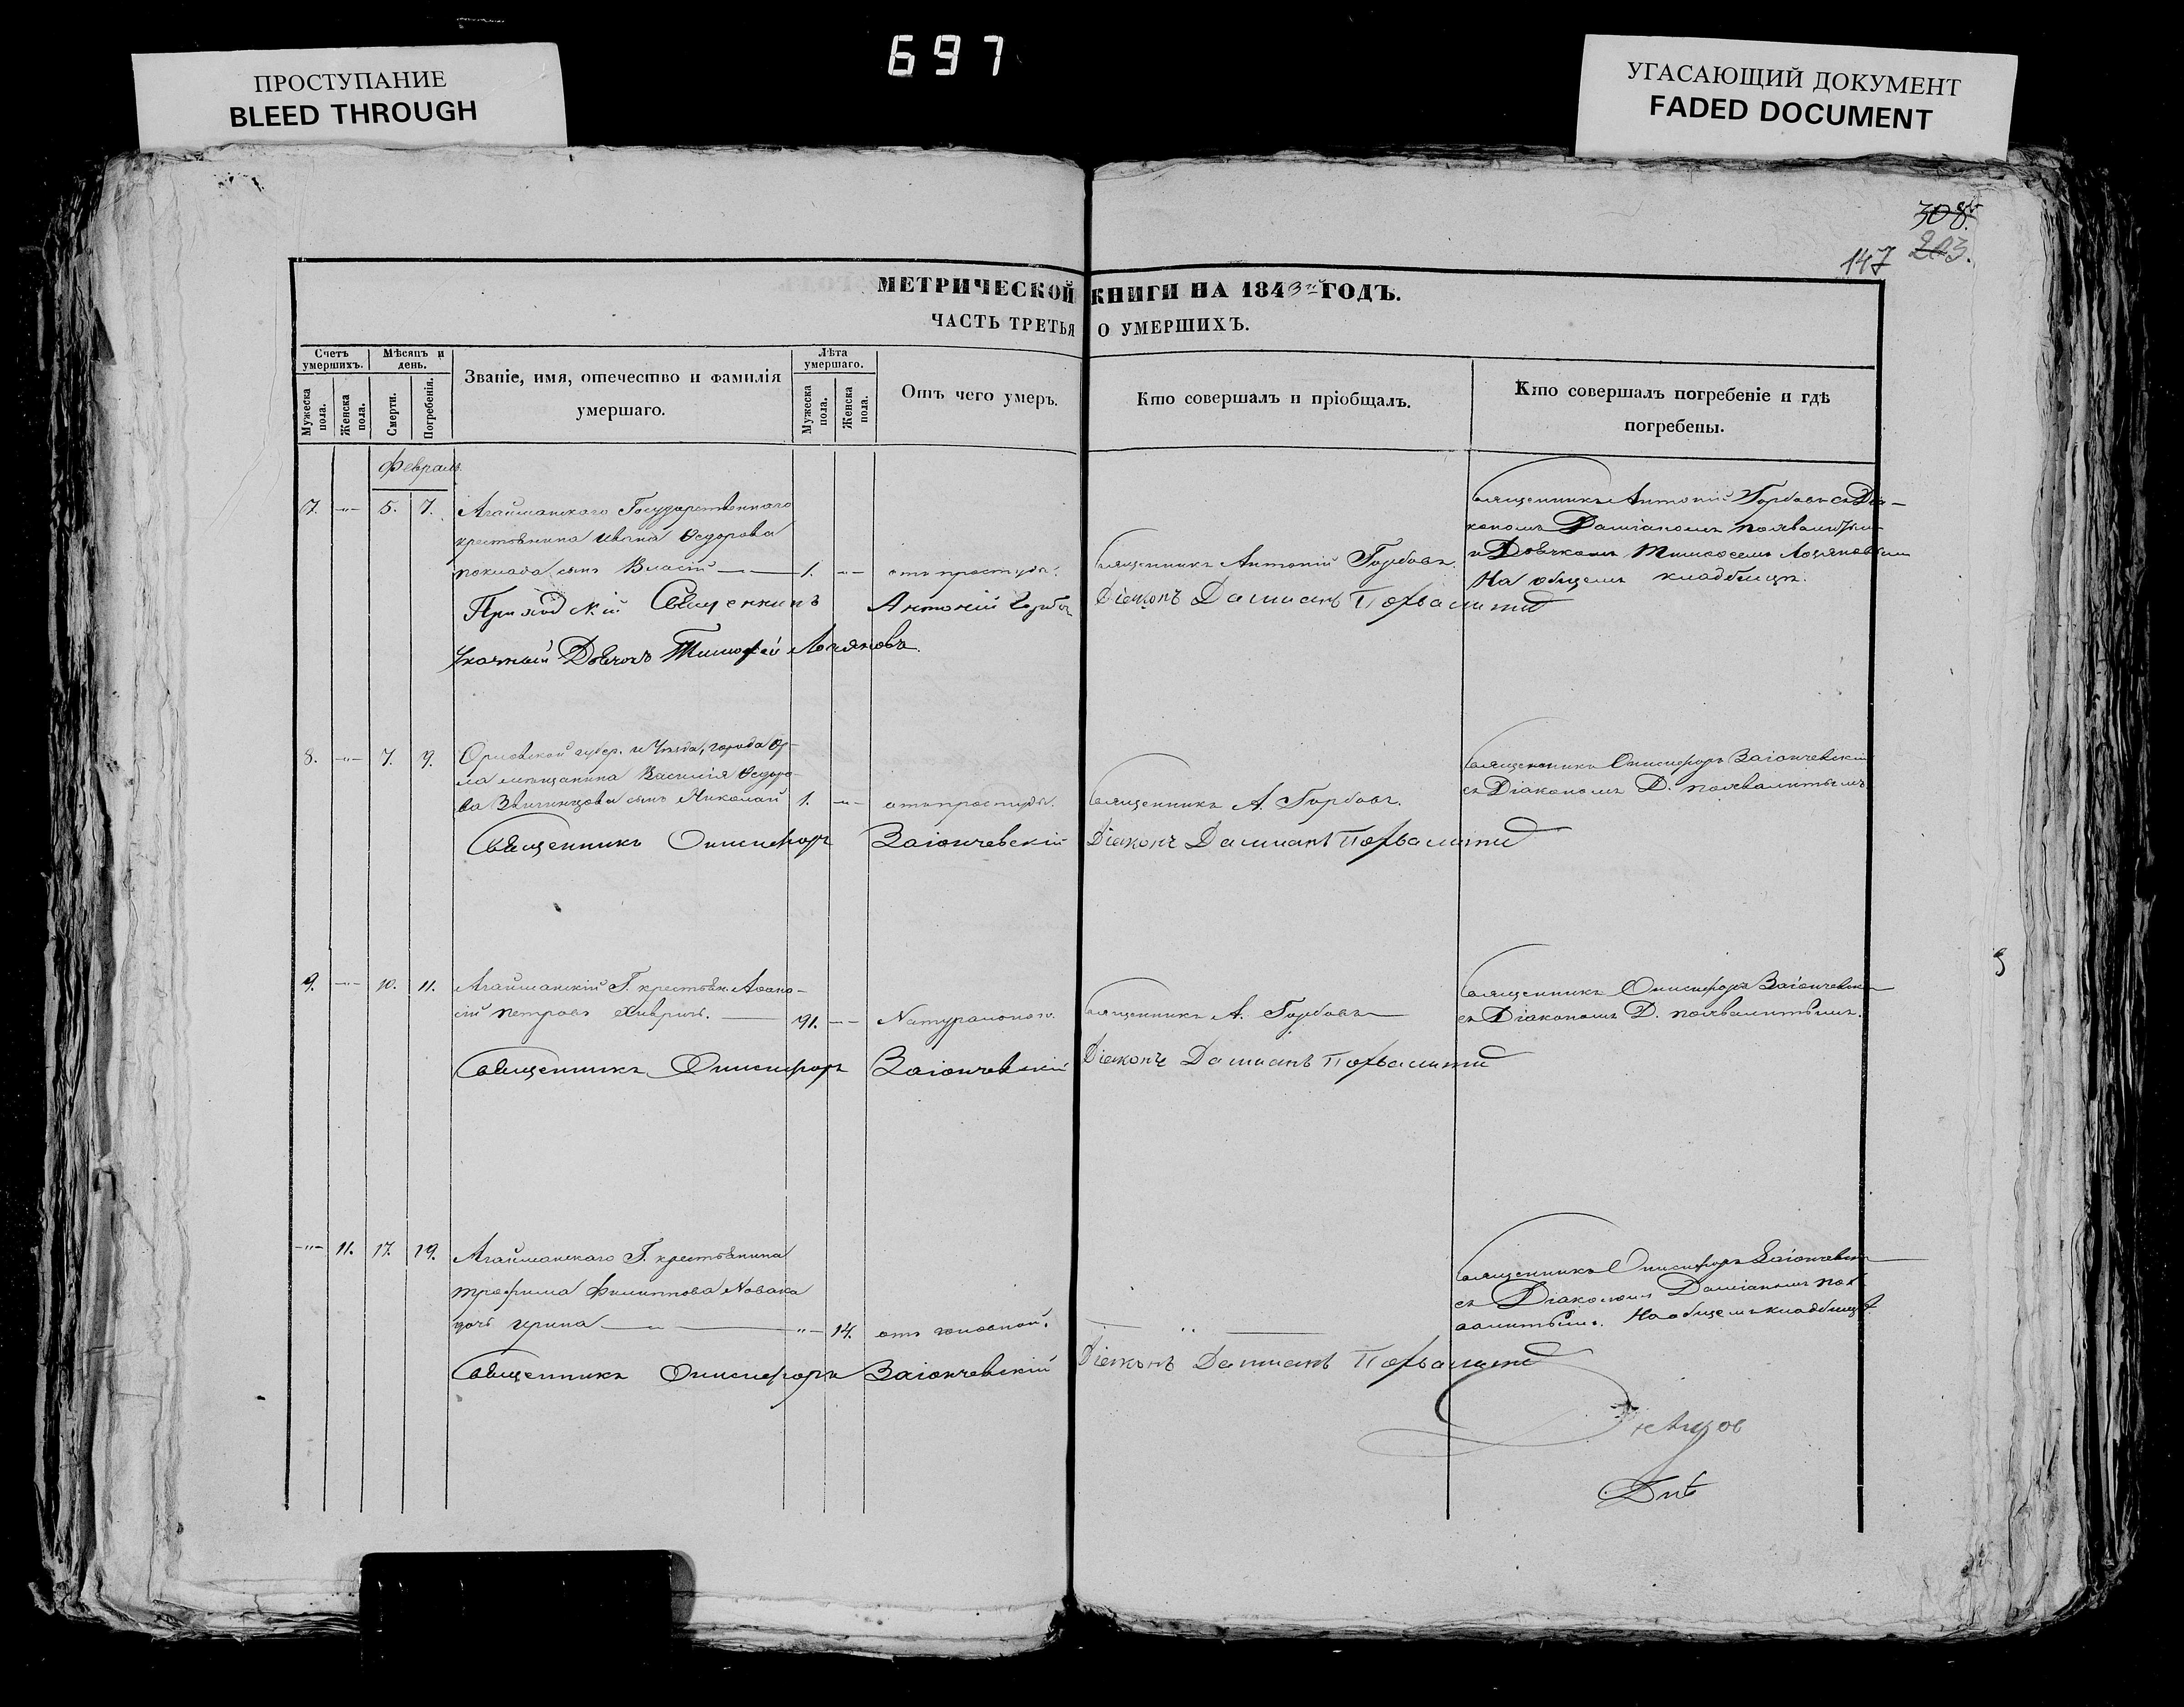 697
ПРОСТУПАНИЕ
BLEED THROUGH
УГАСАЮЩИЙ ДОКУМЕНТ
FADED DOCUMENT
308.
147 203.
МЕТРИЧЕСКОЙ КНИГИ НА 1843й ГОДЪ.
ЧАСТЬ ТРЕТЬЯ О УМЕРШИХЪ.
Счетъ умершихъ.
Мужеска пола.
Женска пола.
Мѣсяцъ и день.
Смерти.
Погребенія.
Званіе, имя, отечество и фамилія
умершаго.
Лѣта умершаго.
Мужеска пола.
Женска пола.
Отъ чего умеръ.
Кто совершалъ и пріобщалъ.
Кто совершалъ погребеніе и гдѣ
погребены.
Февраль
7. -"- 5. 7.
Агайманскаго Государственнаго
крестьянина Ивана Ѳедорова
сынъ Власій 1. -"- отъ простуды.
Священникъ Антоній Горбовъ.
Священникъ Антоній Горбовъ съ Діа-
кономъ Даміаномъ Похвалитымъ
и Дьячкомъ Тимоѳеемъ
На общемъ кладбищѣ.
Приходскій Священникъ Антоній Горбовъ Діаконъ Даміанъ Похвалитый
Указный Дьячокъ Тимофей
8. -"- 7. 9.
Орловской губер. и Уѣзда, города Ор-
ла мѣщанина Василія Ѳедоро-
ва сынъ Николай 1. -"- отъ простуды.
Священникъ А. Горбовъ.
Священникъ Онисифоръ Заіончевскій
съ Діакономъ Д. Похвалитымъ
Священникъ Онисифоръ Заіончевскій Діаконъ Даміанъ Похвалитый
9. -"- 10. 11.
Агайманскій Г. крестьян. Аѳана-
сій Петровъ 91. -"- Натурально.
Священникъ А. Горбовъ
Священникъ Онисифоръ Заіончевскій
съ Діакономъ Д. Похвалитымъ.
Священникъ Онисифоръ Заіончевскій Діаконъ Даміанъ Похвалитый
-"- 11. 17. 19.
Агайманскаго Г. крестьянина
Трофима Филиппова Новака
дочь Ирина -"- 14. отъ головной.
Священникъ Онисифоръ Заіончевскій
съ Діакономъ Даміаномъ Пох-
валитымъ. На общемъ кладбищѣ.
Священникъ Онисифоръ Заіончевскій Діаконъ Даміанъ Похвалитый